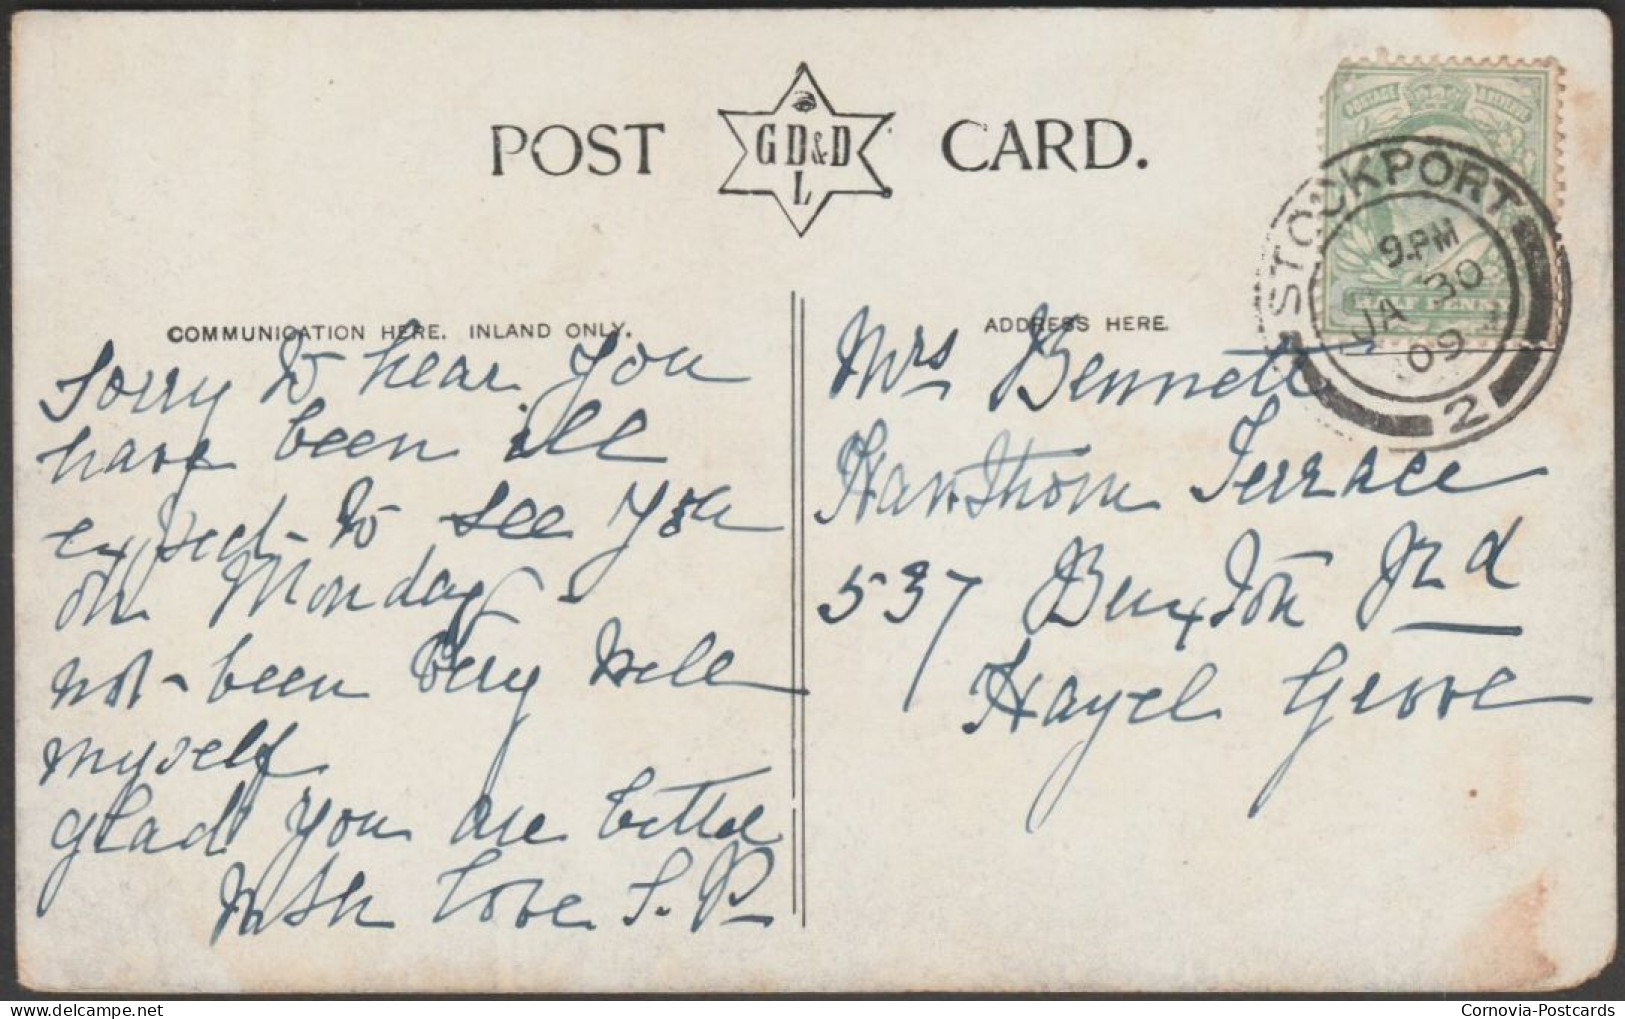 POST CARD.
G D & D
L
STOCKPORT
9.PM
JA 30
09
2
HALF PENNY
COMMUNICATION HERE. INLAND ONLY.
Sorry to hear you
have been ill
expect to see you
on Monday -
not been very well
myself
glad you are better
with love S. P
ADDRESS HERE.
Mrs Bennett
Hawthorn Terrace
537 Buxton Rd
Hazel Grove
delcampe.net
Cornovia-Postcards